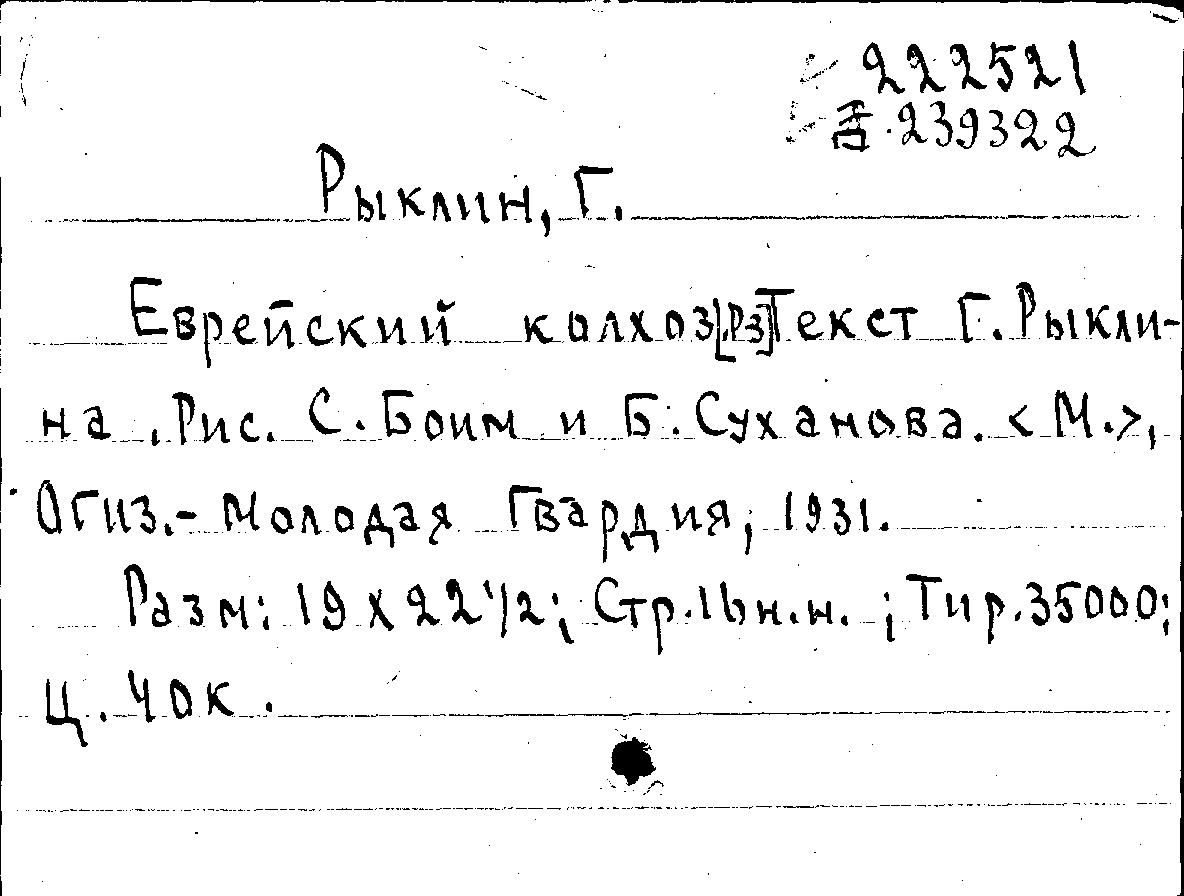 222521
239322
Рыклин, Г.
Еврейский колхоз [Рз] Текст Г. Рыкли-
на. Рис. С. Боим и Б. Суханова. <М.>,
Огиз.- Молодая Гвардия, 1931.
Разм: 19 х 22 1/2; Стр. 16 н.н.; Тир. 35000;
Ц. 40 к.